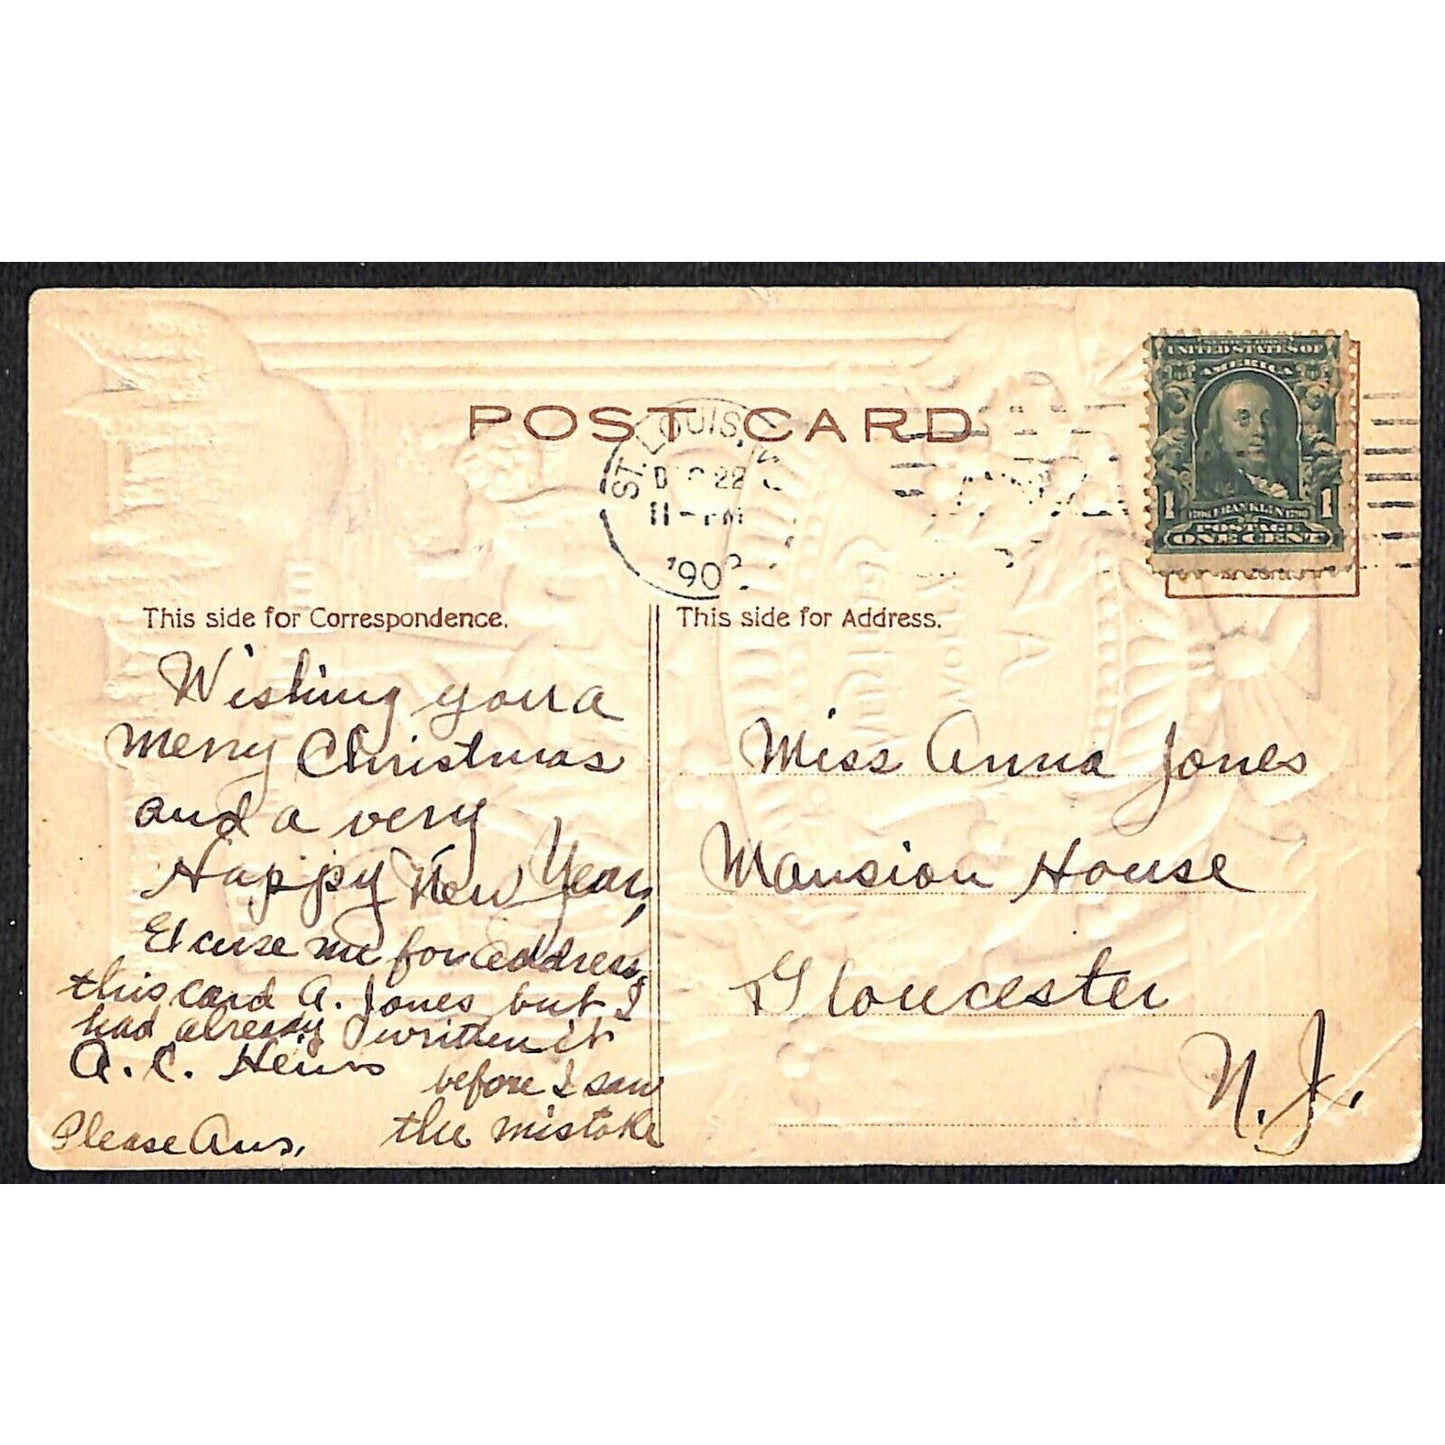 POST CARD
ST. LOUIS,
22
11-PM
190
SERIES 1902
UNITED STATES OF
AMERICA
1 1
FRANKLIN
POSTAGE
ONE CENT
This side for Correspondence.
Wishing you a
Merry Christmas
and a very
Happy New Year,
Excuse me for address,
this card A. Jones but I
had already written it
before I saw
the mistake
A. C.
Please Ans.
This side for Address.
Miss Anna Jones
Mansion House
Gloucester
N.J.